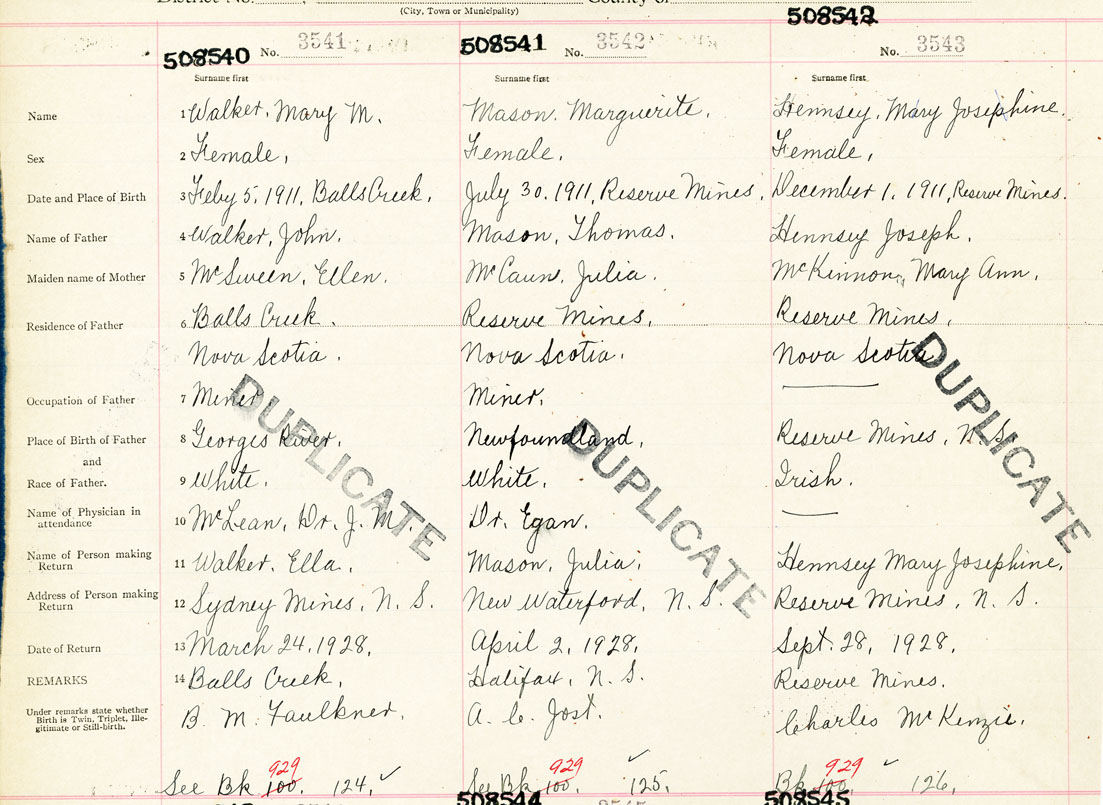 District No. County of
(City, Town or Municipality)
508540 No. 3541
508541 No. 3542
508542 No. 3543
Surname first Surname first Surname first
Name 1 Walker, Mary M. Mason, Marguerite. Hennsey, Mary Josephine.
Sex 2 Female. Female. Female,
Date and Place of Birth 3 Feby 5, 1911, Balls Creek. July 30, 1911, Reserve Mines. December 1, 1911, Reserve Mines.
Name of Father 4 Walker, John. Mason, Thomas. Hennsey Joseph.
Maiden name of Mother 5 McSween, Ellen. McCaun, Julia. McKinnon, Mary Ann.
Residence of Father 6 Balls Creek. Reserve Mines, Reserve Mines,
Nova Scotia. Nova Scotia. Nova Scotia
Occupation of Father 7 Miner Miner.
Place of Birth of Father 8 Georges River. Newfoundland, Reserve Mines, N. S.
and
Race of Father. 9 White. White. Irish.
Name of Physician in attendance 10 McLean, Dr. J. M. Dr. Egan.
Name of Person making Return 11 Walker, Ella. Mason, Julia. Hennsey Mary Josephine,
Address of Person making Return 12 Sydney Mines, N. S. New Waterford, N. S. Reserve Mines, N. S.
Date of Return 13 March 24, 1928, April 2, 1928, Sept. 28, 1928.
REMARKS 14 Balls Creek, Halifax, N. S. Reserve Mines.
Under remarks state whether Birth is Twin, Triplet, Illegitimate or Still-birth. B. M. Faulkner. A. C. Jost. Charles McKenzie.
DUPLICATE DUPLICATE DUPLICATE
929 929 929
See Bk 100. 124, See Bk 100. 125. Bk 100. 126.
508544 508545